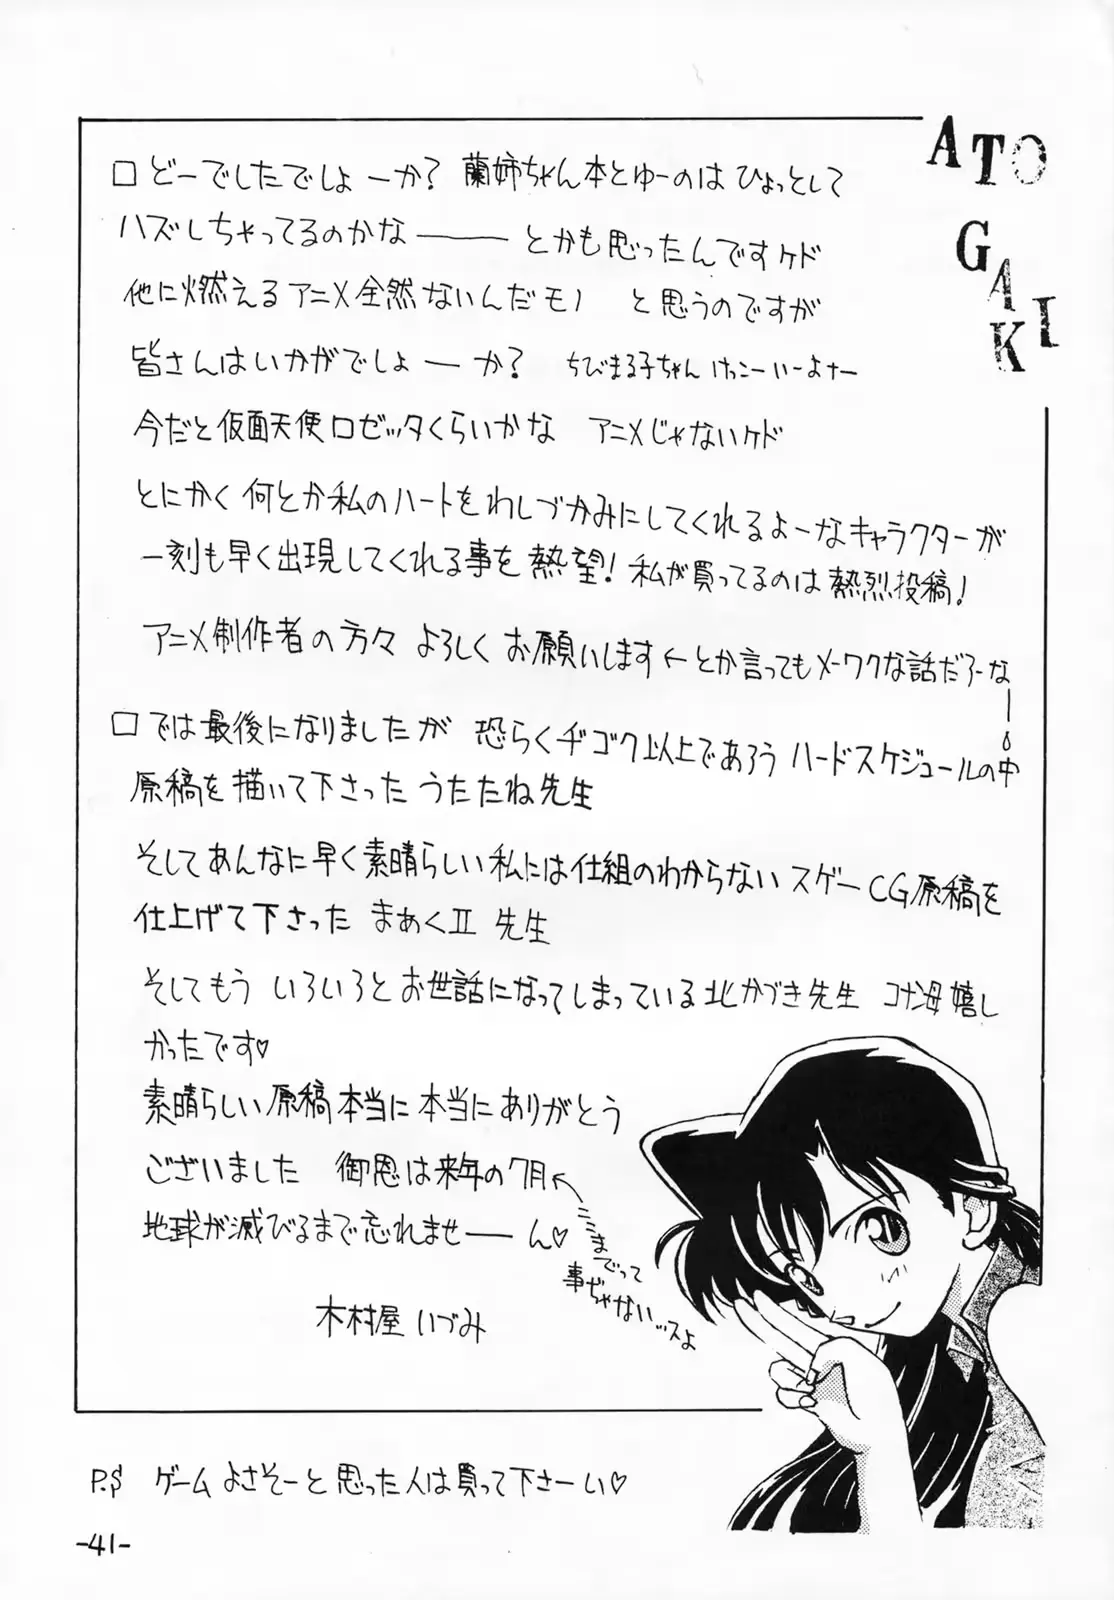 ATO
GAKI
□どーでしたでしょーか? 蘭姉ちゃん本とゆーのは ひょっとして
ハズしちゃってるのかな―― とかも思ったんですケド
他に燃えるアニメ全然ないんだモノ と思うのですが
皆さんはいかがでしょーか? ちびまる子ちゃん けっこーいーよナー
今だと仮面天使ロゼッタくらいかな アニメじゃないケド
とにかく 何とか私のハートをわしづかみにしてくれるよーなキャラクターが
一刻も早く出現してくれる事を熱望! 私が買ってるのは熱烈投稿!
アニメ制作者の方々 よろしく お願いします←とか言ってもメーワクな話だろーなー
□では最後になりましたが 恐らくヂゴク以上であろう ハードスケジュールの中
原稿を描いて下さった うたたね先生
そしてあんなに早く素晴らしい私には仕組のわからない スゲー CG原稿を
仕上げて下さった まぁくII 先生
そしてもう いろいろとお世話になってしまっている 北かづき先生 コナン母 嬉し
かったです♡
素晴らしい原稿本当に本当にありがとう
ございました 御恩は来年の7月←
ここまでって
事ぢゃないッスよ
地球が滅びるまで忘れませ――ん♡
木村屋 いづみ
P.S ゲーム よさそーと思った人は買って下さーい♡
-41-